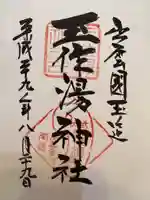 出雲國玉造
玉作湯神社
平成廿九年八月廿九日